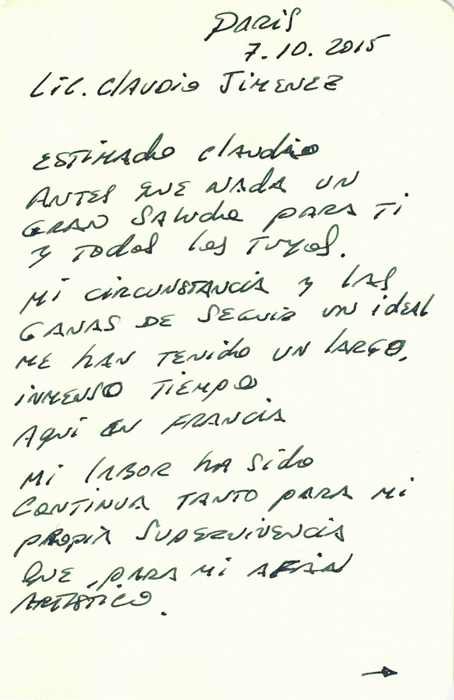 Paris
7.10.2015
Lic. Claudio Jimenez
Estimado Claudio
Antes que nada un
gran saludo para ti
y todos los tuyos.
Mi circunstancia y las
ganas de seguir un ideal
me han tenido un largo,
inmenso tiempo
aquí en Francia
Mi labor ha sido
continua tanto para mi
propia supervivencia
que, para mi afán
artístico.
→